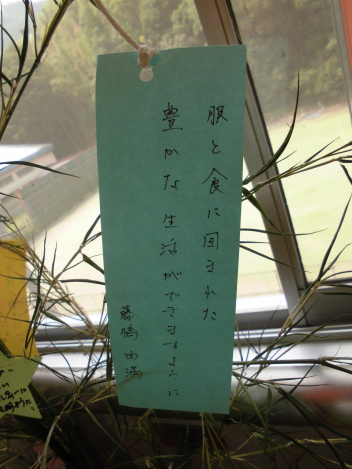 服と食に囲まれた
豊かな生活ができますように